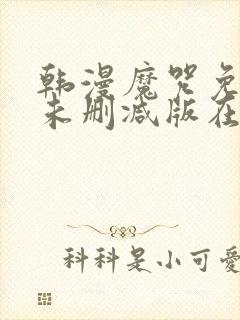 韩漫魔咒免
未删减版在
科科是小可爱